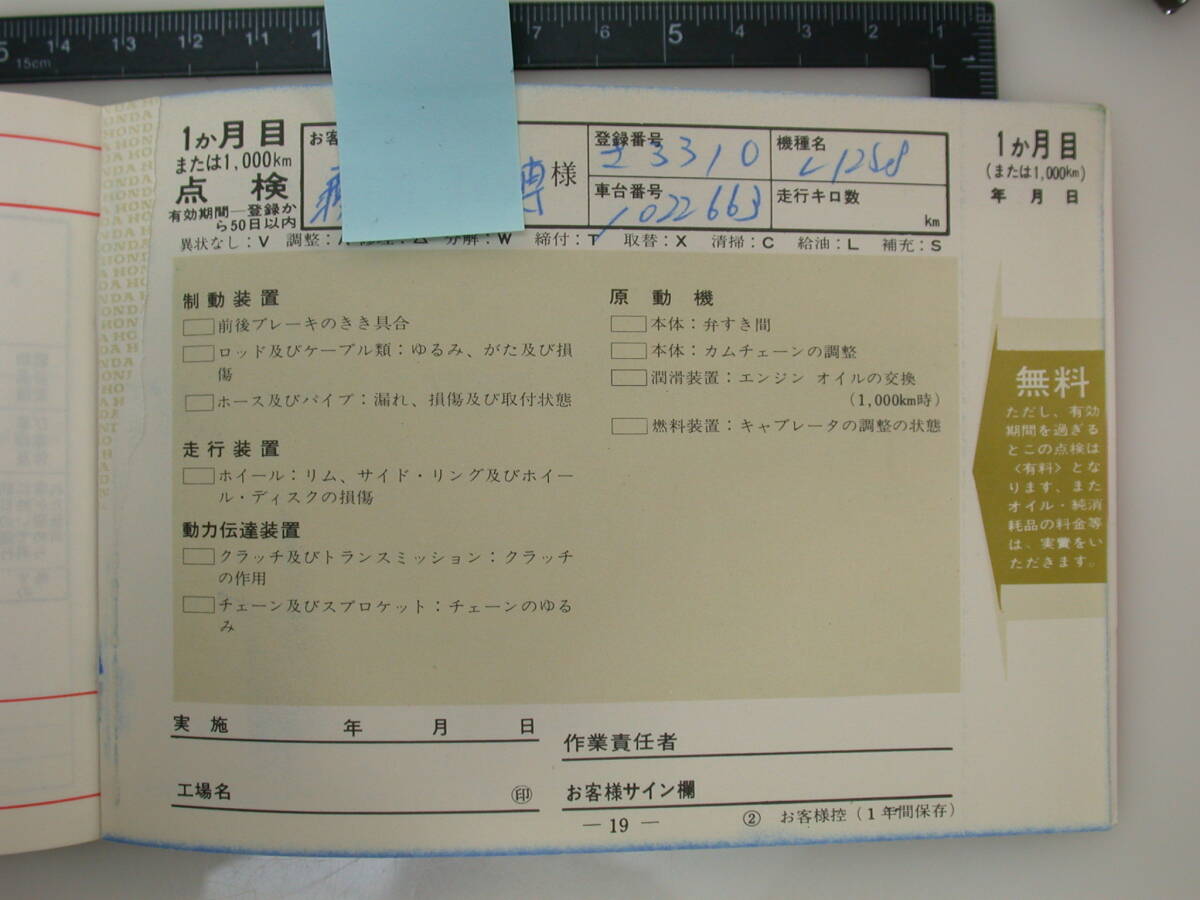 14 13 12 11 1 7 6 5 4 3 2 1
15cm
1か月目
または1,000km
点検
有効期間—登録か
ら50日以内
お客
様
登録番号
さ3310
機種名
L125S8
車台番号
1022663
走行キロ数
km
異状なし：V 調整：A 修理：△ 分解：W 締付：T 取替：X 清掃：C 給油：L 補充：S
制動装置
前後ブレーキのきき具合
ロッド及びケーブル類：ゆるみ、がた及び損
傷
ホース及びパイプ：漏れ、損傷及び取付状態
走行装置
ホイール：リム、サイド・リング及びホイー
ル・ディスクの損傷
動力伝達装置
クラッチ及びトランスミッション：クラッチ
の作用
チェーン及びスプロケット：チェーンのゆる
み
原動機
本体：弁すき間
本体：カムチェーンの調整
潤滑装置：エンジン オイルの交換
（1,000km時）
燃料装置：キャブレータの調整の状態
実施 年 月 日
工場名 ㊞
作業責任者
お客様サイン欄
— 19 —
② お客様控（1年間保存）
1か月目
(または1,000km)
年 月 日
無料
ただし、有効
期間を過ぎる
とこの点検は
〈有料〉とな
ります、また
オイル・純消
耗品の料金等
は、実費をい
ただきます。